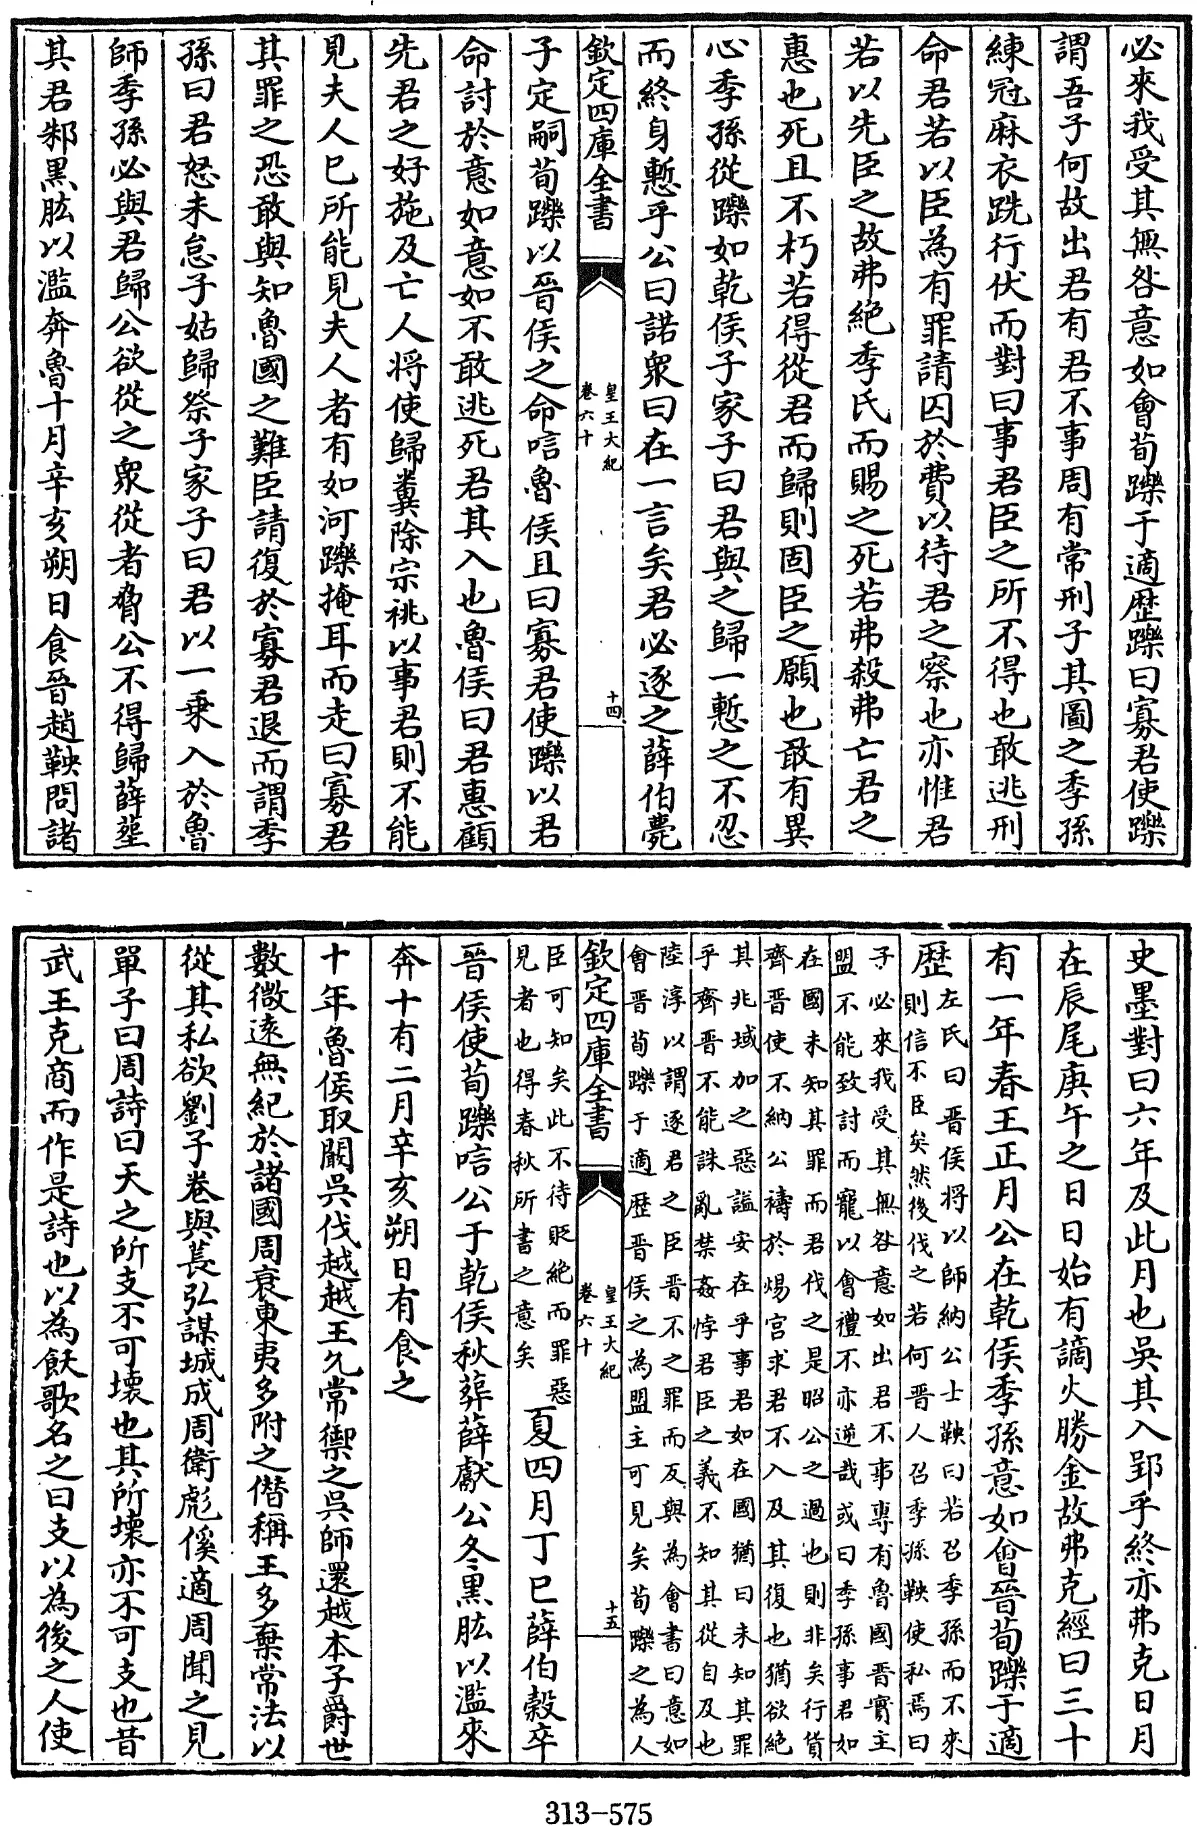 必來我受其無咎意如會荀躒于適歷躒曰寡君使躒
謂吾子何故出君有君不事周有常刑子其圖之季孫
練冠麻衣跣行伏而對曰事君臣之所不得也敢逃刑
命君若以臣為有罪請囚於費以待君之察也亦惟君
若以先臣之故弗絕季氏而賜之死若弗殺弗亡君之
惠也死且不朽若得從君而歸則固臣之願也敢有異
心季孫從躒如乾侯子家子曰君與之歸一慙之不忍
而終身慙乎公曰諾衆曰在一言矣君必逐之薛伯薨
欽定四庫全書
皇王大紀
卷六十
十四
子定嗣荀躒以晉侯之命唁魯侯且曰寡君使躒以君
命討於意如意如不敢逃死君其入也魯侯曰君惠顧
先君之好施及亡人將使歸糞除宗祧以事君則不能
見夫人已所能見夫人者有如河躒掩耳而走曰寡君
其罪之恐敢與知魯國之難臣請復於寡君退而謂季
孫曰君怒未怠子姑歸祭子家子曰君以一乗入於魯
師季孫必與君歸公欲從之衆從者脅公不得歸薛塟
其君邾黒肱以濫奔魯十月辛亥朔日食晉趙鞅問諸
史墨對曰六年及此月也吳其入郢乎終亦弗克日月
在辰尾庚午之日日始有謫火勝金故弗克經曰三十
有一年春王正月公在乾侯季孫意如會晉荀躒于適
歷
左氏曰晉侯将以師納公士鞅曰若召季孫而不來
則信不臣矣然後伐之若何晉人召季孫鞅使私焉曰
子必來我受其無咎意如出君不事專有魯國晉實主
盟不能致討而寵以會禮不亦逆哉或曰季孫事君如
在國未知其罪而君伐之是昭公之過也則非矣行貨
齊晉使不納公禱於煬宮求君不入及其復也猶欲絕
其兆域加之惡謚安在乎事君如在國猶曰未知其罪
乎齊晉不能誅亂禁姦悖君臣之義不知其從自及也
陸淳以謂逐君之臣晉不之罪而反與為會書曰意如
會晉荀躒于適歷晉侯之為盟主可見矣荀躒之為人
欽定四庫全書
皇王大紀
卷六十
十五
臣可知矣此不待貶絕而罪惡
見者也得春秋所書之意矣
夏四月丁巳薛伯穀卒
晉侯使荀躒唁公于乾侯秋葬薛獻公冬黒肱以濫來
奔十有二月辛亥朔日有食之
十年魯侯取闞吳伐越越王允常禦之吳師還越本子爵世
數微逺無紀於諸國周衰東夷多附之僣稱王多棄常法以
從其私欲劉子卷與萇弘謀城成周衛彪傒適周聞之見
單子曰周詩曰天之所支不可壞也其所壞亦不可支也昔
武王克商而作是詩也以為飫歌名之曰支以為後之人使
313-575